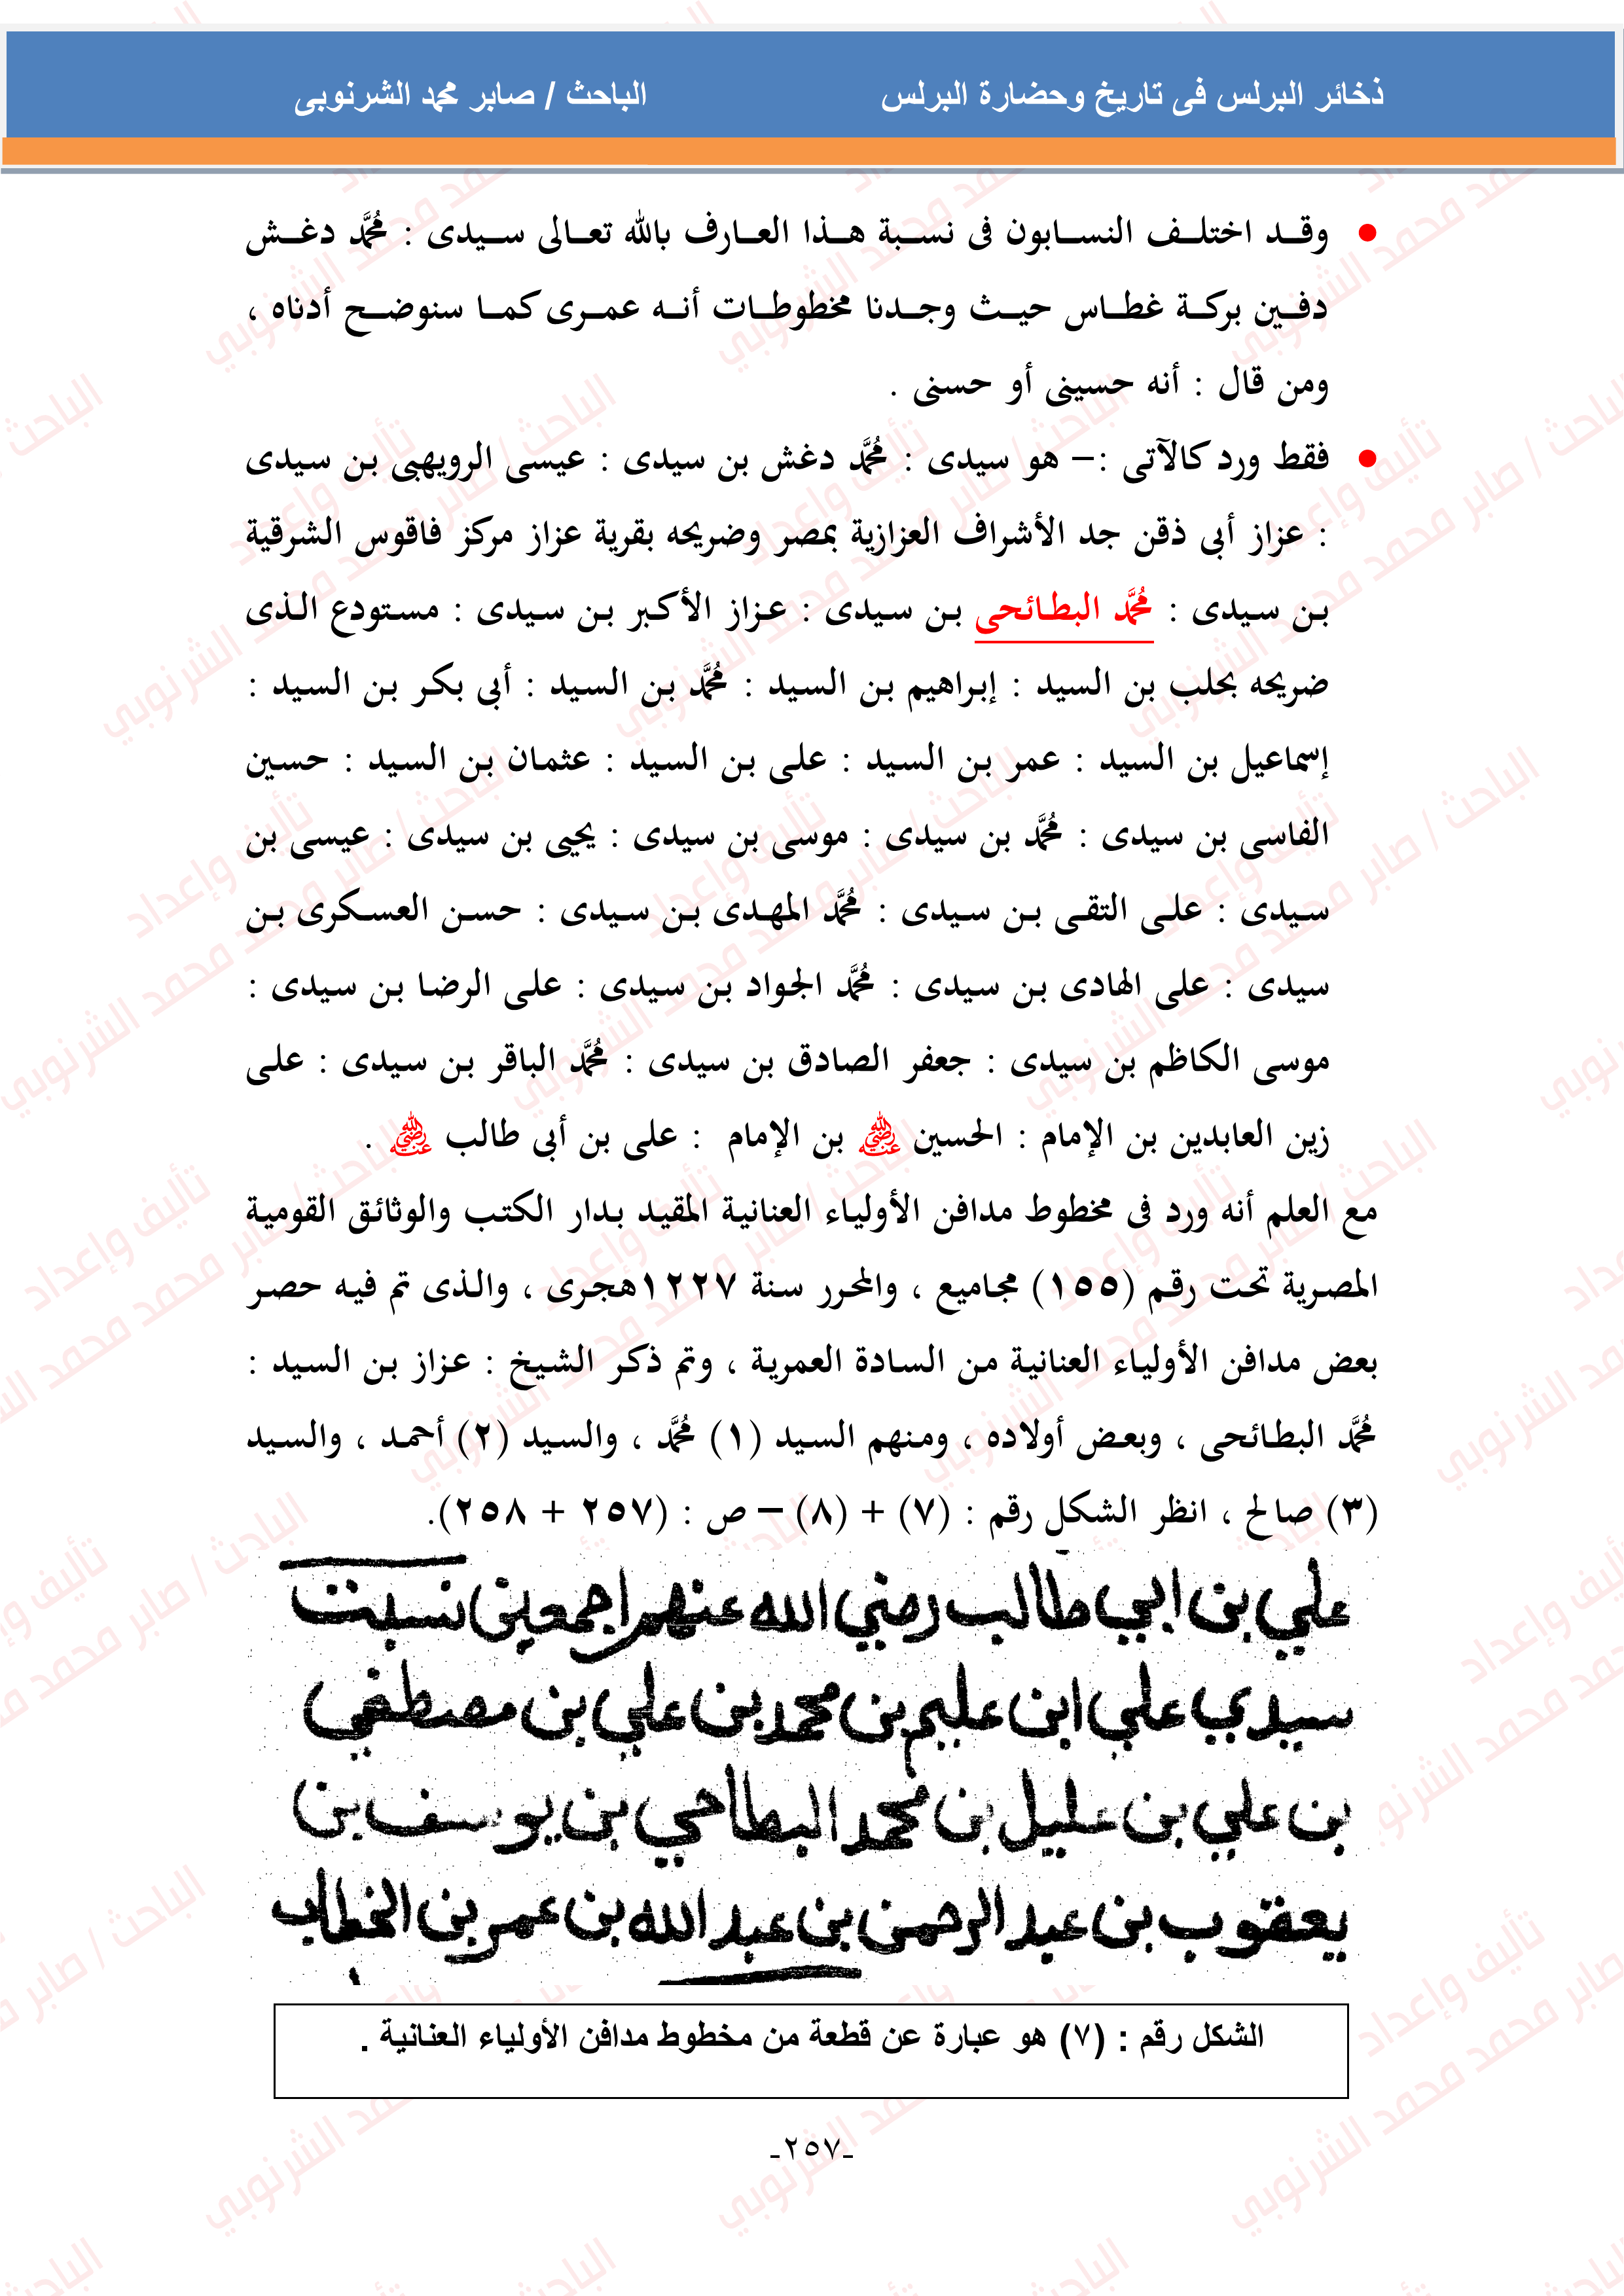 ذخائر البرلس فى تاريخ وحضارة البرلس الباحث / صابر محمد الشرنوبى
• وقد اختلف النسابون فى نسبة هذا العارف بالله تعالى سيدى : مُحَمَّد دغش
دفين بركة غطاس حيث وجدنا مخطوطات أنه عمرى كما سنوضح أدناه ،
ومن قال : أنه حسينى أو حسنى .
• فقط ورد كالآتى :– هو سيدى : مُحَمَّد دغش بن سيدى : عيسى الرويهبى بن سيدى
: عزاز أبى ذقن جد الأشراف العزازية بمصر وضريحه بقرية عزاز مركز فاقوس الشرقية
بن سيدى : مُحَمَّد البطائحى بن سيدى : عزاز الأكبر بن سيدى : مستودع الذى
ضريحه بحلب بن السيد : إبراهيم بن السيد : مُحَمَّد بن السيد : أبى بكر بن السيد :
إسماعيل بن السيد : عمر بن السيد : على بن السيد : عثمان بن السيد : حسين
الفاسى بن سيدى : مُحَمَّد بن سيدى : موسى بن سيدى : يحيى بن سيدى : عيسى بن
سيدى : على التقى بن سيدى : مُحَمَّد المهدى بن سيدى : حسن العسكرى بن
سيدى : على الهادى بن سيدى : مُحَمَّد الجواد بن سيدى : على الرضا بن سيدى :
موسى الكاظم بن سيدى : جعفر الصادق بن سيدى : مُحَمَّد الباقر بن سيدى : على
زين العابدين بن الإمام : الحسين رضي الله عنه بن الإمام : على بن أبى طالب رضي الله عنه .
مع العلم أنه ورد فى مخطوط مدافن الأولياء العنانية المقيد بدار الكتب والوثائق القومية
المصرية تحت رقم (١٥٥) مجاميع ، والمحرر سنة ١٢٢٧هجرى ، والذى تم فيه حصر
بعض مدافن الأولياء العنانية من السادة العمرية ، وتم ذكر الشيخ : عزاز بن السيد :
مُحَمَّد البطائحى ، وبعض أولاده ، ومنهم السيد (١) مُحَمَّد ، والسيد (٢) أحمد ، والسيد
(٣) صالح ، انظر الشكل رقم : (٧) + (٨) – ص : (٢٥٧ + ٢٥٨).
علي بن ابي طالب رضي الله عنهم اجمعين نسبت
سيدي علي ابن عليم بن محمد بن علي بن مصطفي
بن علي بن عليل بن محمد البطاحي بن يوسف بن
يعقوب بن عبد الرحمن بن عبد الله بن عمر بن الخطاب
الشكل رقم : (٧) هو عبارة عن قطعة من مخطوط مدافن الأولياء العنانية .
-٢٥٧-
تأليف وإعداد
الباحث / صابر محمد محمد الشرنوبي